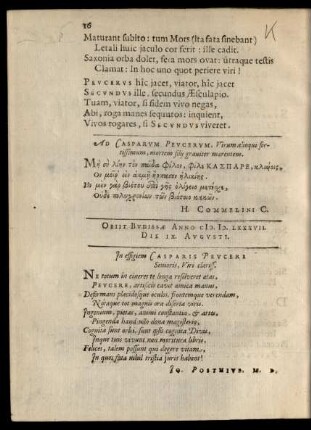 16
Maturant subito: tum Mors (sta fata sinebant)
Letali huic jaculo cor ferit: ille cadit.
Saxonia orba dolet, fera mors ovat: utraque testis
Clamat: In hoc uno quot periere viri!
PEUCERUS hîc jacet, viator, hîc jacet
SECUNDUS ille, secundus Æsculapio.
Tuam, viator, si fidem vivo negas,
Abi, roga manes sequutos: inquient,
Vivos rogares, si SECUNDUS viveret.
AD CASPARUM PEUCERUM, Virum
mortem filij graviter merentem.
ΚΑΣΠΑΡΕ,
H. COMMELINI C.
OBIIT BUDISSÆ ANNO CIↃ. IↃ. LXXXVII.
DIE IX. AUGUSTI.
In effigiem CASPARIS PEUCERI
Senioris, Viri clariss.
NE totum in cineret te longa resolveret ætas,
PEUCERE, artificis cavit amica manus,
Deformans placidosque oculos, frontemque verendam,
Notaque tot magnis ora diserta viris.
Ingenium, pietas, animi constantia, & artes,
Pingenda haud ulli dona magisterio,
Cognita sunt orbi, sunt ipsis cognita Divis,
Inque tuis vivunt non moritura libris.
Felices, talem possunt qui degere vitam,
In quos fata nihil tristia juris habent!
IO. POSTHIUS. M. D.